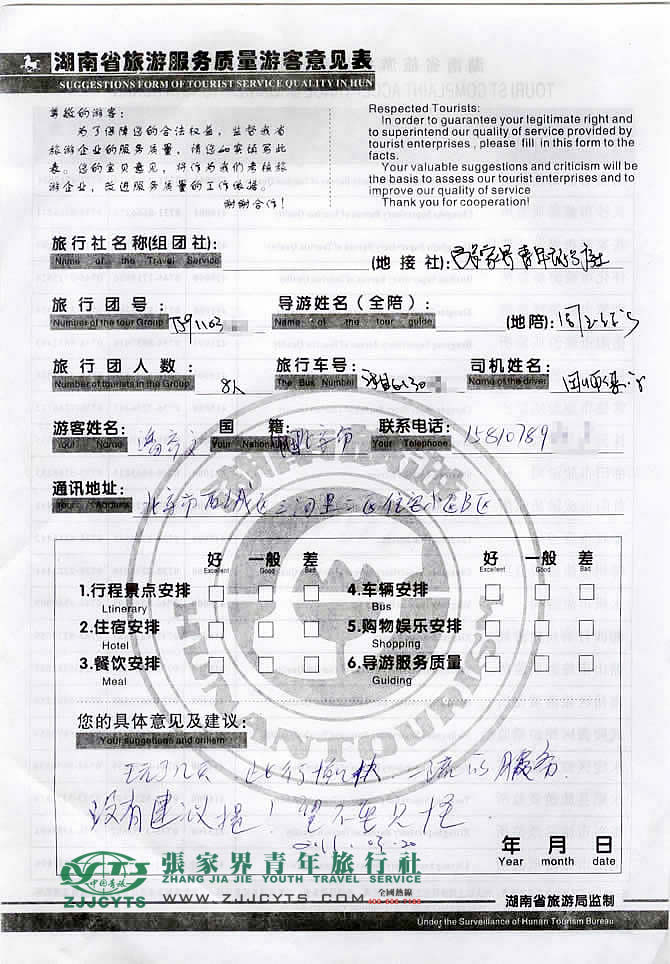 湖南省旅游服务质量游客意见表
SUGGESTIONS FORM OF TOURIST SERVICE QUALITY IN HUN
尊敬的游客:
为了保障您的合法权益，监督我省
旅游企业的服务质量，请您如实填写此
表。您的宝贝意见，将作为我们考核旅
游企业，改进服务质量的工作依据。
谢谢合作!
Respected Tourists:
In order to guarantee your legitimate right and
to superintend our quality of service provided by
tourist enterprises , please fill in this form to the
facts.
Your valuable suggestions and criticism will be
the basis to assess our tourist enterprises and to
improve our quality of service
Thank you for cooperation!
旅行社名称(组团社): (地接社): 张家界青年旅行社
Name of the Travel Service
旅行团号: 导游姓名(全陪): (地陪):
Number of the tour Group Name of the tour guide
旅行团人数: 8人 旅行车号: 司机姓名:
Number of tourists in the Group The Bus Number Name of the driver
游客姓名: 国籍: 北京市 联系电话: 15810789
Your Name Your Nationality Your Telephone
通讯地址: 北京市西城区三里河三区住宅小区B区
Your Address
好 一般 差 好 一般 差
Excellent Good Bad Excellent Good Bad
1.行程景点安排 4.车辆安排
Ltinerary Bus
2.住宿安排 5.购物娱乐安排
Hotel Shopping
3.餐饮安排 6.导游服务质量
Meal Guiding
HUNAN TOURISM
您的具体意见及建议:
Your suggetions and critism
玩了几天，此行愉快，一流的服务.
没有建议提! 望不要见怪
2011.03.20
年 月 日
Year month date
中国青旅
ZJJCYTS
張家界青年旅行社
ZHANG JIA JIE YOUTH TRAVEL SERVICE
WWW.ZJJCYTS.COM
全國熱線
湖南省旅游局监制
Under the Surveillance of Hunan Tourism Bureau